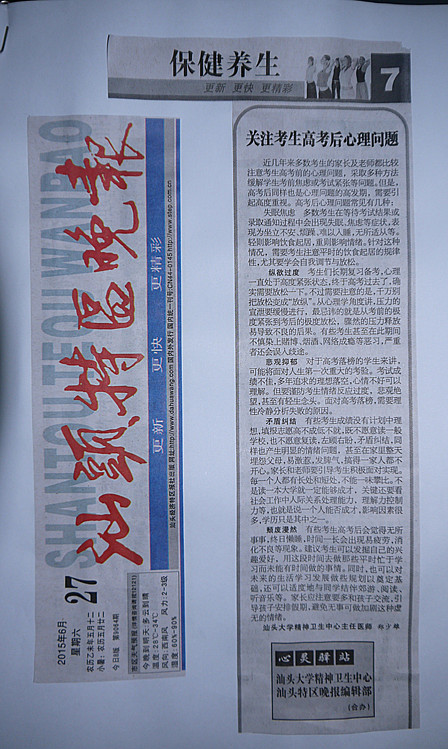 保健养生
更新 更快 更精彩
7
关注考生高考后心理问题
近几年来多数考生的家长及老师都比较
注意考生高考前的心理问题，采取多种方法
缓解学生考前焦虑或考试紧张等问题。但是，
高考后同样也是心理问题的高发期，需要引
起高度重视。高考后心理问题常见有几种：
失眠焦虑 多数考生在等待考试结果或
录取通知过程中会出现失眠、焦虑等症状，表
现为坐立不安、烦躁、难以入睡、无所适从等。
轻则影响饮食起居，重则影响情绪。针对这种
情况，需要考生注意平时的饮食起居的规律
性，尤其要学会自我调节与放松。
纵欲过度 考生们长期复习备考，心理
一直处于高度紧张状态，终于高考过去了，确
实需要放松一下。不过需要注意的是，千万别
把放松变成“放纵”。从心理学角度讲，压力的
宣泄要缓慢进行，最忌讳的就是从考前的极
度紧张到考后的极度放松，骤然的压力释放
易导致不良的后果。有些考生甚至在此期间
不慎染上赌博、烟酒、网络成瘾等恶习，严重
者还会误入歧途。
悲观抑郁 对于高考落榜的学生来讲，
可能将面对人生第一次重大的考验。考试成
绩不佳，多年追求的理想落空，心情不好可以
理解。但要谨防考生情绪反应过度，悲观绝
望，甚至有轻生念头。面对高考落榜，需要理
性冷静分析失败的原因。
矛盾纠结 有些考生成绩没有计划中理
想，填报志愿高不成低不就，既不愿意读一般
学校，也不愿意复读，左顾右盼，矛盾纠结，同
样也产生明显的情绪问题，甚至在家里整天
埋怨父母，易激惹、发脾气，搞得一家人都不
开心。家长和老师要引导考生积极面对实现。
每一个人都有长处和短处，不能一味攀比。不
是读一本大学就一定能够成才，关键还要看
社会工作中人际关系处理能力，理解力控制
力等，也就是说一个人能否成才，影响因素很
多，学历只是其中之一。
颓度漫然 有些考生高考后会觉得无所
事事，终日懒睡，时间一长会出现易疲劳，消
化不良等现象。建议考生可以发掘自己的兴
趣爱好，用这段时间去做那些平时忙于学
习而未能有时间做的事情。同时，也可以对
未来的生活学习发展做些规划以奠定基
础，还可以适度地与同学结伴郊游、阅读、
听音乐等。家长也应注意多和孩子交流，引
导孩子安排假期，避免无事可做加剧这种虚
无的情绪。
汕头大学精神卫生中心主任医师 郑少雄
心灵驿站
汕头大学精神卫生中心
汕头特区晚报编辑部
(合办)
SHANTOU TEQU WANBAO
汕頭特區晚報
更新 更快 更精彩
汕头经济特区报社出版 网址:http://www.dahuawang.com 国内外发行 国内统一刊号:CN44-0145 http://www.step.com.cn
2015年6月
27
星期六
农历乙未年五月十二
小暑：农历五月廿二
今日8版 第9064期
市区天气预报
今晚到明天：多云到晴
温度：28℃~34℃
风向：西南风 风力：2~3级
湿度：60%~90%